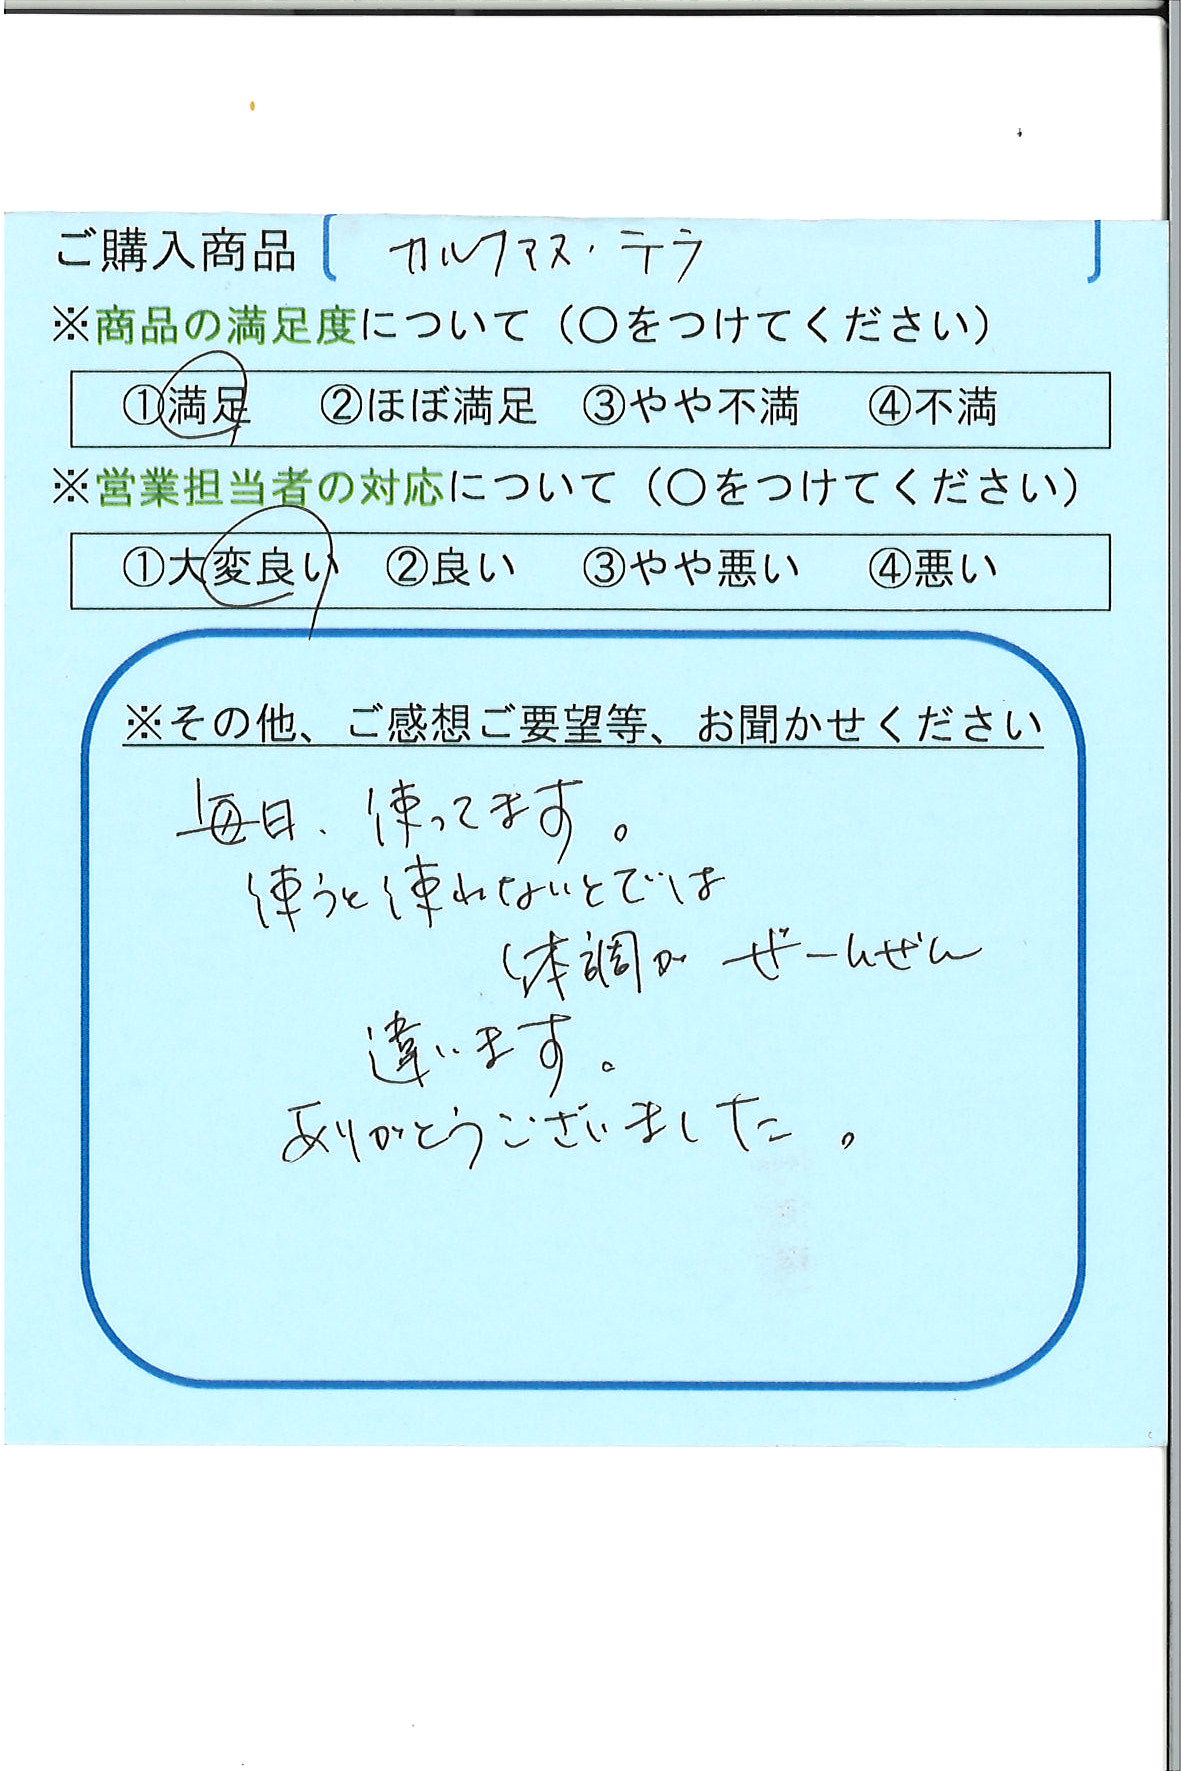 ご購入商品 カルマックス・テラ
※商品の満足度について（○をつけてください）
①満足 ②ほぼ満足 ③やや不満 ④不満
※営業担当者の対応について（○をつけてください）
①大変良い ②良い ③やや悪い ④悪い
※その他、ご感想ご要望等、お聞かせください
毎日、使ってます。
使うと使わないとでは
体調が ぜーんぜん
違います。
ありがとうございました。